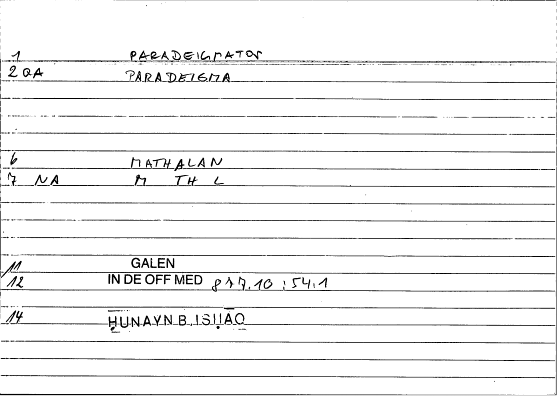 1 PARADEIGMATOS
2 QA PARADEIGMA
6 MATHALAN
7 NA M TH L
11 GALEN
12 IN DE OFF MED 877.10 : 54.1
14 ḤUNAYN B. ISḤĀQ